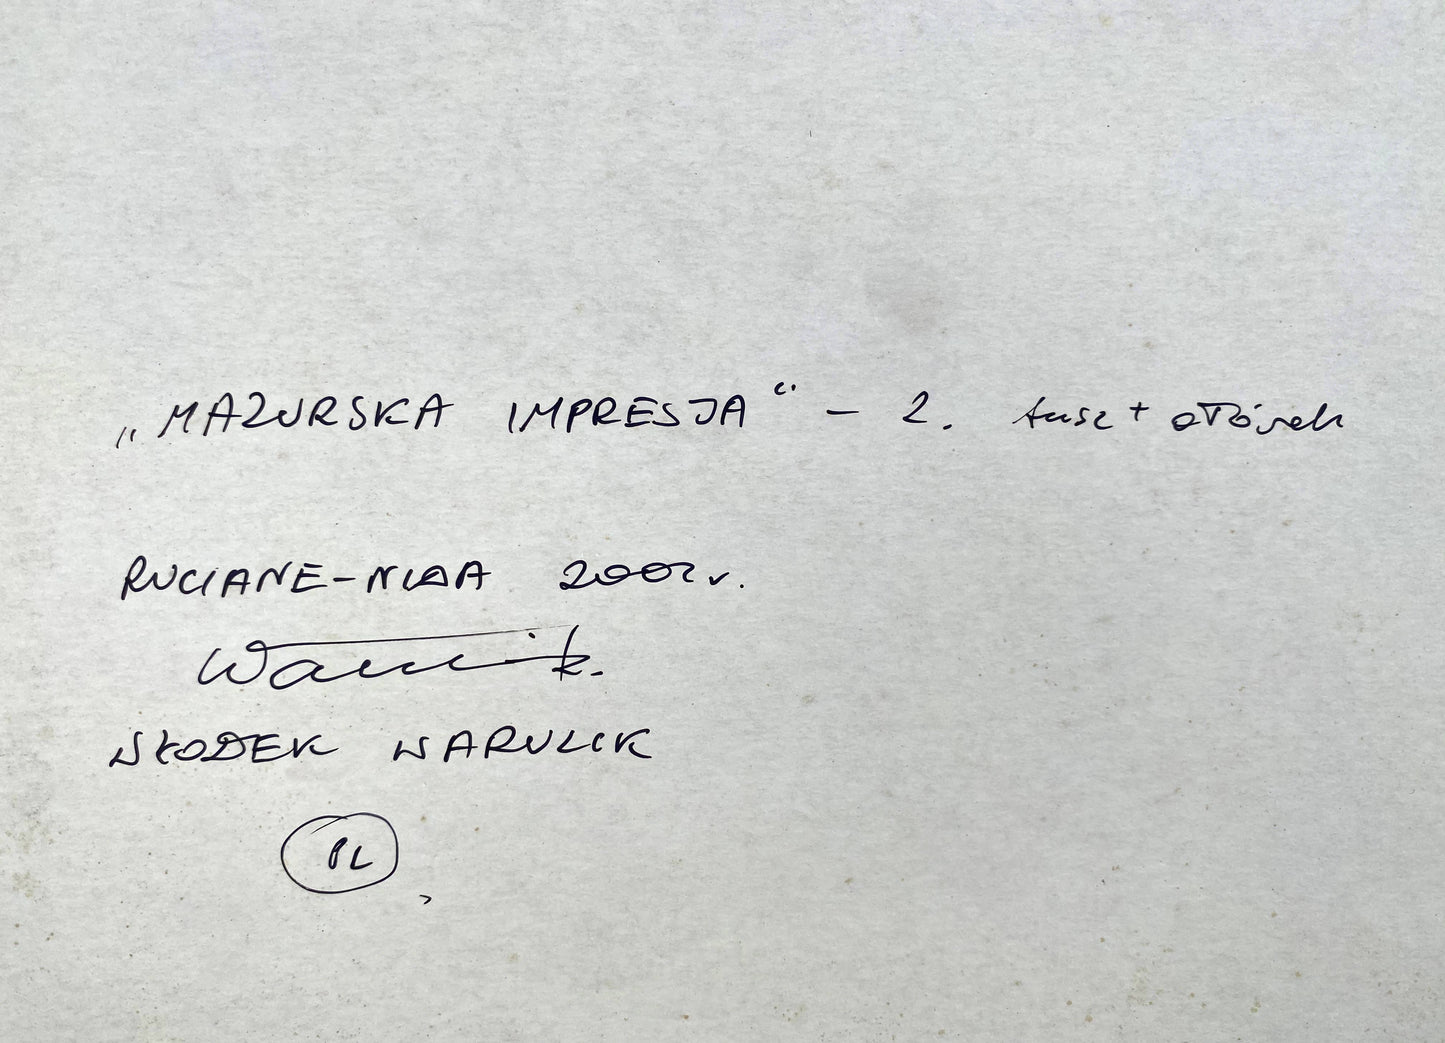 „MAZURSKA IMPRESJA" – 2. tusz + ołówek
RUCIANE-NIDA 2002 r.
WŁODEK WARULIK
PL